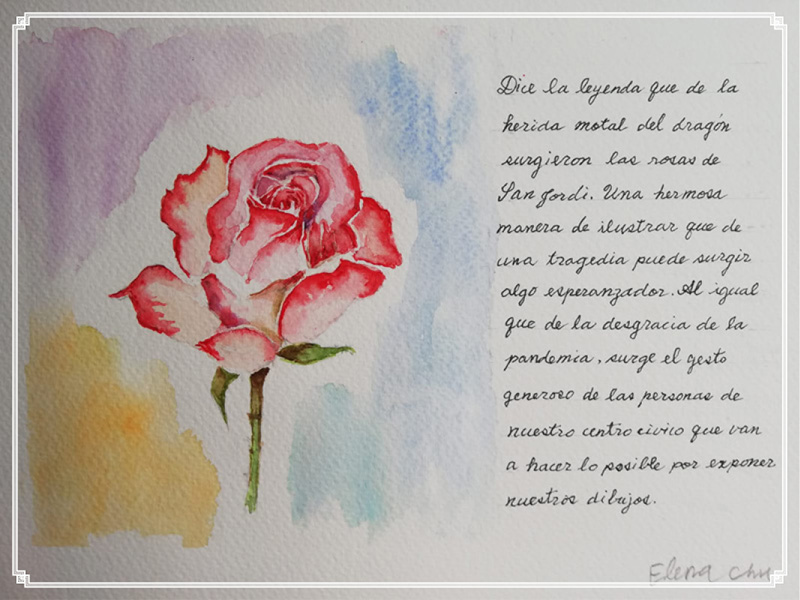 Dice la leyenda que de la
herida motal del dragón
surgieron las rosas de
San Jordi. Una hermosa
manera de ilustrar que de
una tragedia puede surgir
algo esperanzador. Al igual
que de la desgracia de la
pandemia, surge el gesto
generoso de las personas de
nuestro centro civico que van
a hacer lo posible por exponer
nuestros dibujos.
Elena Chu